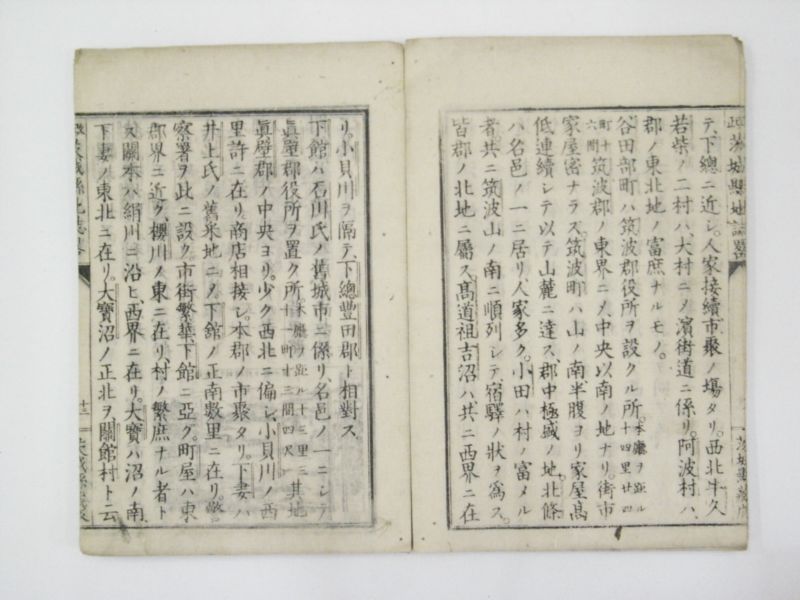 テ、下總ニ近シ。人家接續市聚ノ場タリ。西北牛久
若柴ノ二村ハ、大村ニメ濱街道ニ係リ。阿波村ハ、
郡ノ東北地ノ富庶ナルモノ。
谷田部町ハ筑波郡役所ヲ設クル所。本廳ヲ距ル十四里廿四
町十六間筑波郡ノ東界ニメ、中央以南ノ地ナリ。街市
家屋密ナラス。筑波町ハ山ノ南半腹ヨリ家屋高
低連續シテ以テ山麓ニ達ス、郡中極盛ノ地。北條
ハ名邑ノ一ニ居リ、人家多ク。小田ハ村ノ富メル
者共ニ筑波山ノ南ニ順列シテ宿驛ノ狀ヲ爲ス。
皆郡ノ北地ニ屬ス。髙道祖吉沼ハ共ニ西界ニ在
リ。小貝川ヲ隔テ、下總豊田郡ト相對ス
下館ハ石川氏ノ舊城市ニ係リ、名邑ノ一ニシテ
眞壁郡役所ヲ置ク所。本廳ヲ距ル十三里三十一町廿三間四尺其地
眞壁郡ノ中央ヨリ。少ク西北ニ偏シ、小貝川ノ西
里許ニ在リ。商店相接シ。本郡ノ市聚タリ。下妻ハ
井上氏ノ舊采地ニメ、下館ノ正南數里ニ在リ。警
察署ヲ此ニ設ク。市街繁華、下館ニ亞グ。町屋ハ東
郡界ニ近ク、櫻川ノ東ニ在リ、村ノ繁庶ナル者ト
ス。關本ハ絹川ニ沿ヒ、西界ニ在リ。大寶ハ沼ノ南、
下妻ノ東北ニ在リ。大寶沼ノ正北ヲ、關館村ト云
茨城縣地誌畧
十二